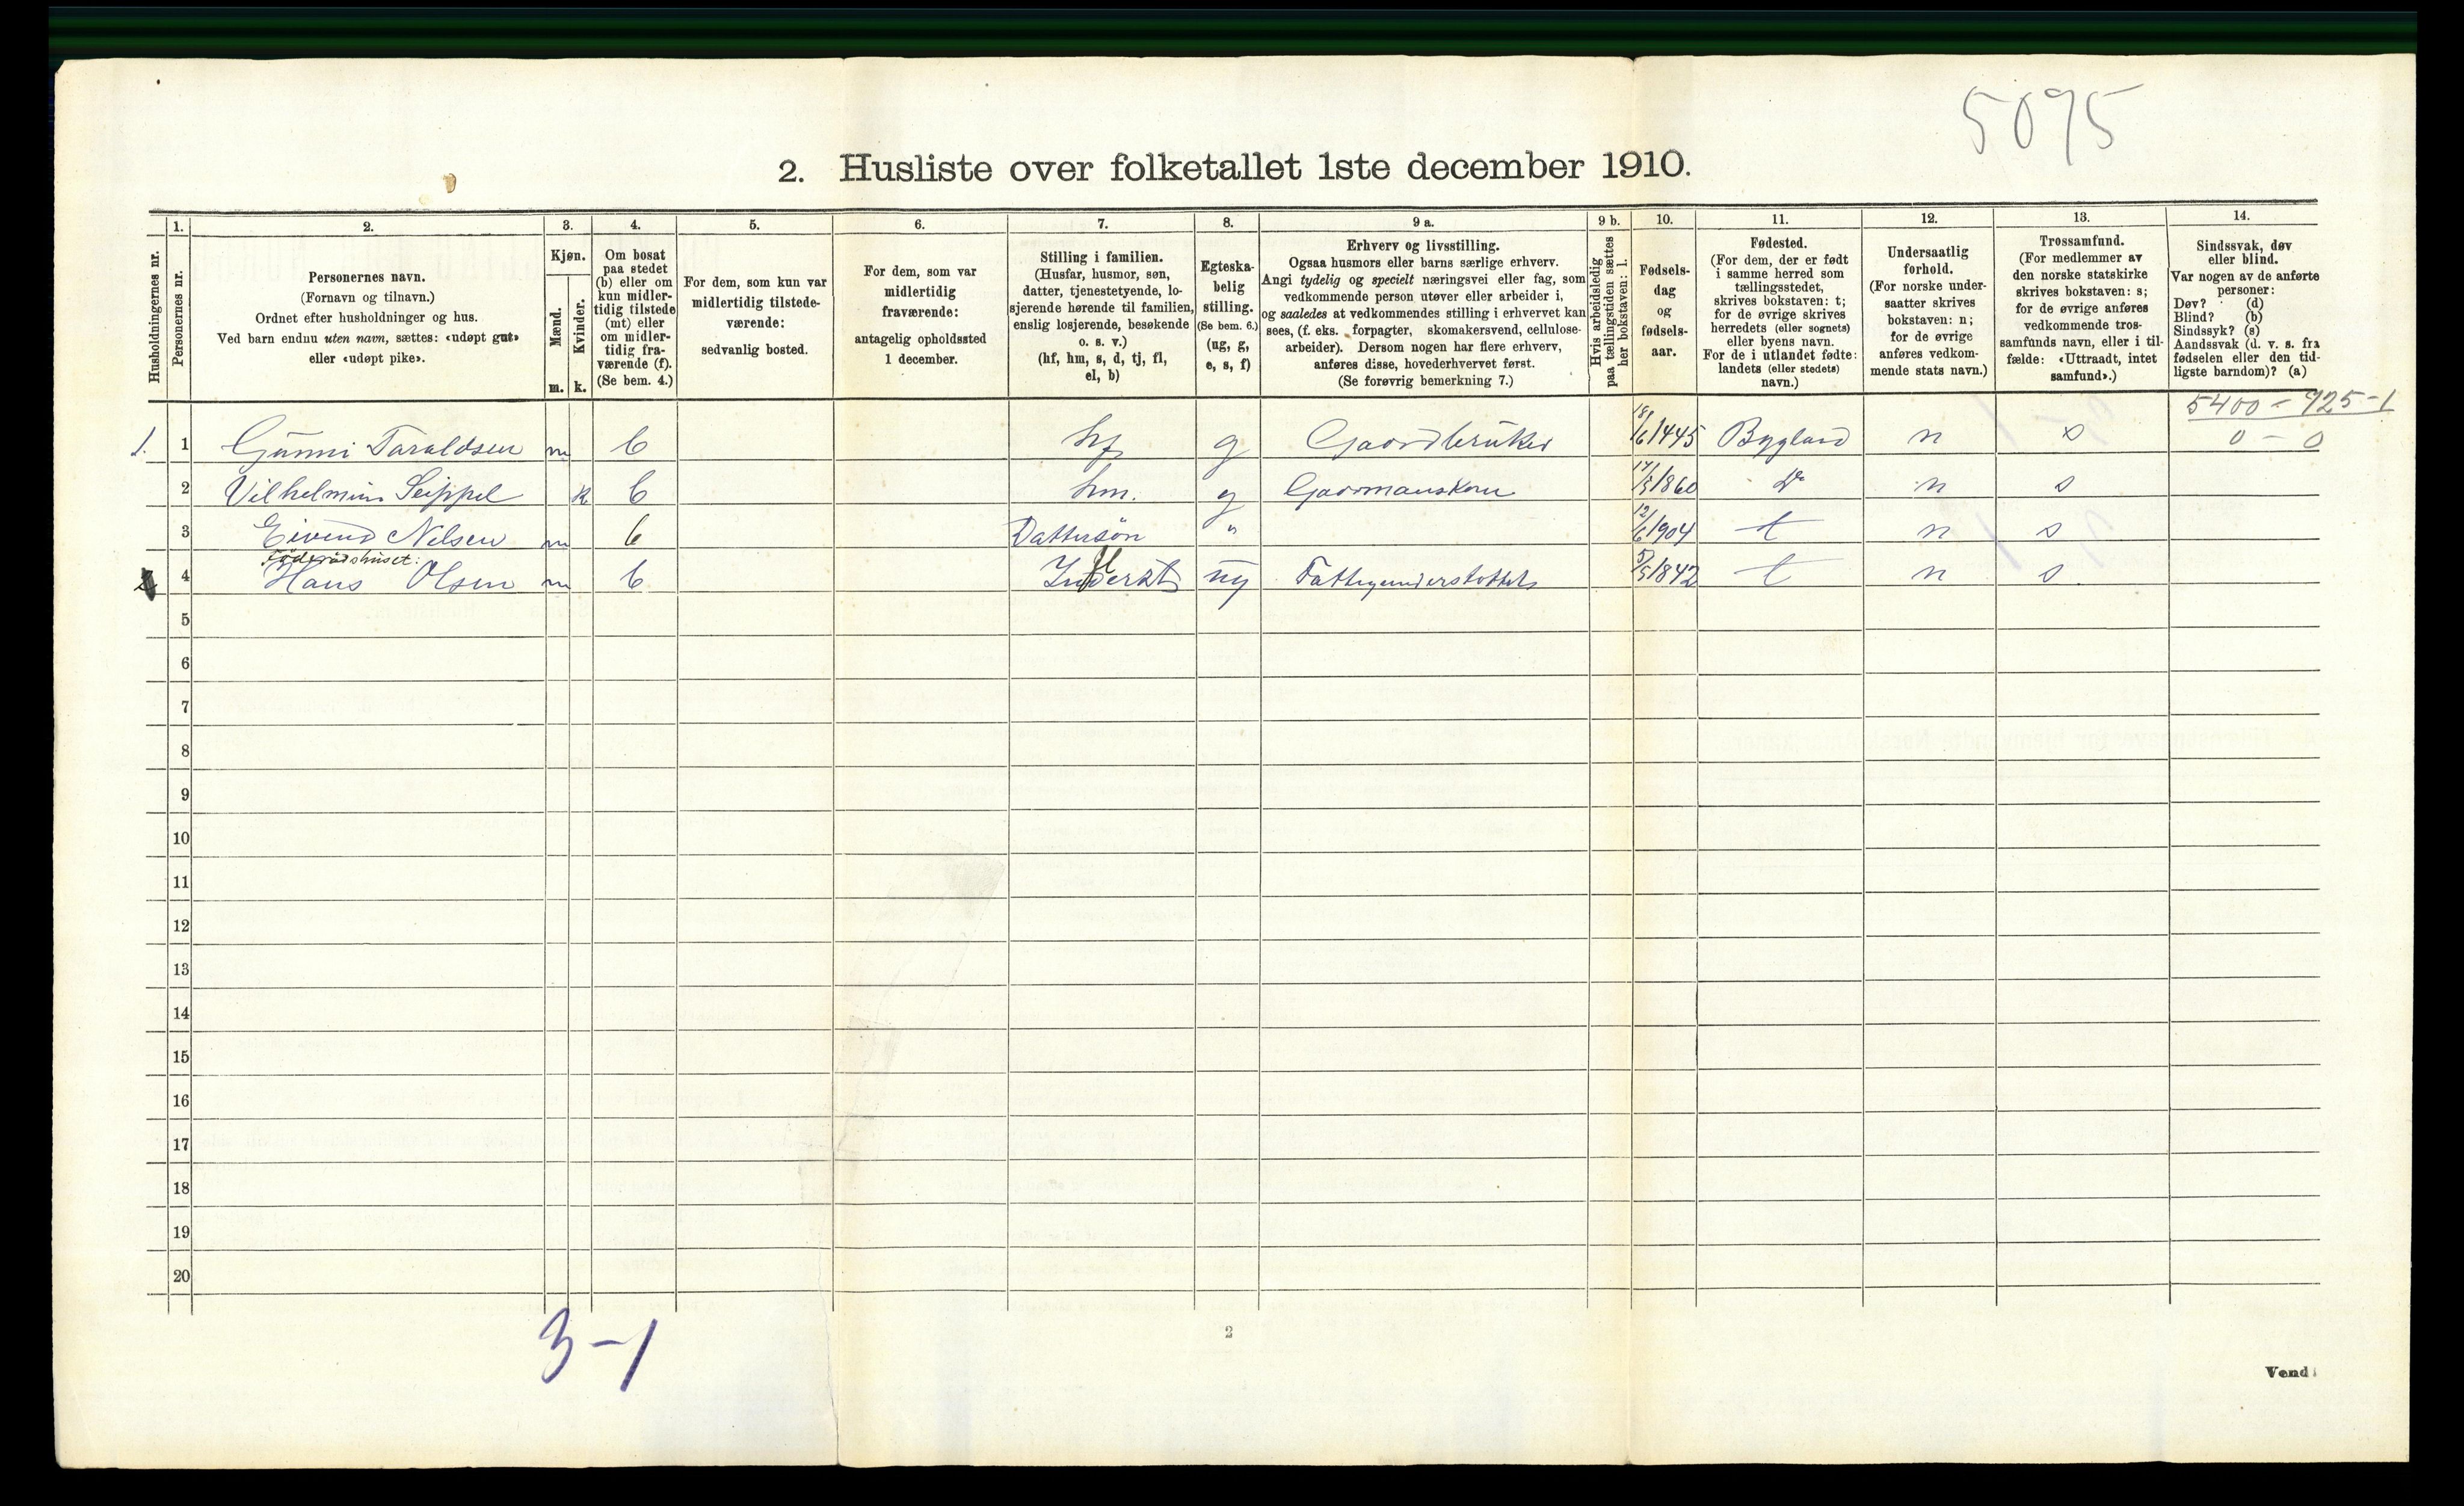 5095
2. Husliste over folketallet 1ste december 1910.
Husholdningernes nr.
1.
Personernes nr.
2.
Personernes navn.
(Fornavn og tilnavn.)
Ordnet efter husholdninger og hus.
Ved barn endnu uten navn, sættes: «udøpt gut»
eller «udøpt pike».
3.
Kjøn.
Mænd.
Kvinder.
m. k.
4.
Om bosat
paa stedet
(b) eller om
kun midler-
tidig tilstede
(mt) eller
om midler-
tidig fra-
værende (f).
(Se bem. 4.)
5.
For dem, som kun var
midlertidig tilstede-
værende:
sedvanlig bosted.
6.
For dem, som var
midlertidig
fraværende:
antagelig opholdssted
1 december.
7.
Stilling i familien.
(Husfar, husmor, søn,
datter, tjenestetyende, lo-
sjerende hørende til familien,
enslig losjerende, besøkende
o. s. v.)
(hf, hm, s, d, tj, fl,
el, b)
8.
Egteska-
belig
stilling.
(Se bem. 6.)
(ug, g,
e, s, f)
9 a.
Erhverv og livsstilling.
Ogsaa husmors eller barns særlige erhverv.
Angi tydelig og specielt næringsvei eller fag, som
vedkommende person utøver eller arbeider i,
og saaledes at vedkommendes stilling i erhvervet kan
sees, (f. eks. forpagter, skomakersvend, cellulose-
arbeider). Dersom nogen har flere erhverv,
anføres disse, hovederhvervet først.
(Se forøvrig bemerkning 7.)
9 b.
Hvis arbeidsledig
paa tællingstiden sættes
her bokstaven: l.
10.
Fødsels-
dag
og
fødsels-
aar.
11.
Fødested.
(For dem, der er født
i samme herred som
tællingsstedet,
skrives bokstaven: t;
for de øvrige skrives
herredets (eller sognets)
eller byens navn.
For de i utlandet fødte:
landets (eller stedets)
navn.)
12.
Undersaatlig
forhold.
(For norske under-
saatter skrives
bokstaven: n;
for de øvrige
anføres vedkom-
mende stats navn.)
13.
Trossamfund.
(For medlemmer av
den norske statskirke
skrives bokstaven: s;
for de øvrige anføres
vedkommende tros-
samfunds navn, eller i til-
fælde: «Uttraadt, intet
samfund».)
14.
Sindssvak, døv
eller blind.
Var nogen av de anførte
personer:
Døv? (d)
Blind? (b)
Sindssyk? (s)
Aandssvak (d. v. s. fra
fødselen eller den tid-
ligste barndom)? (a)
5400 - 925-1
1. 1 Gunni Taraldsen m b hf g Gaardbruker 18/6 1845 Bygland n s 0 - 0
2 Vilhelmine Seippel k b hm. g Gaarmanskone 17/5 1860 Do n s
3 Eivind Nilsen m b Dattersøn " 12/6 1904 t n s
Föderådshuset:
4 Hans Olsen m b ug Fattigunderstøttet 5/5 1842 t n s.
5
6
7
8
9
10
11
12
13
14
15
16
17
18
19
20
3-1
2
Vend